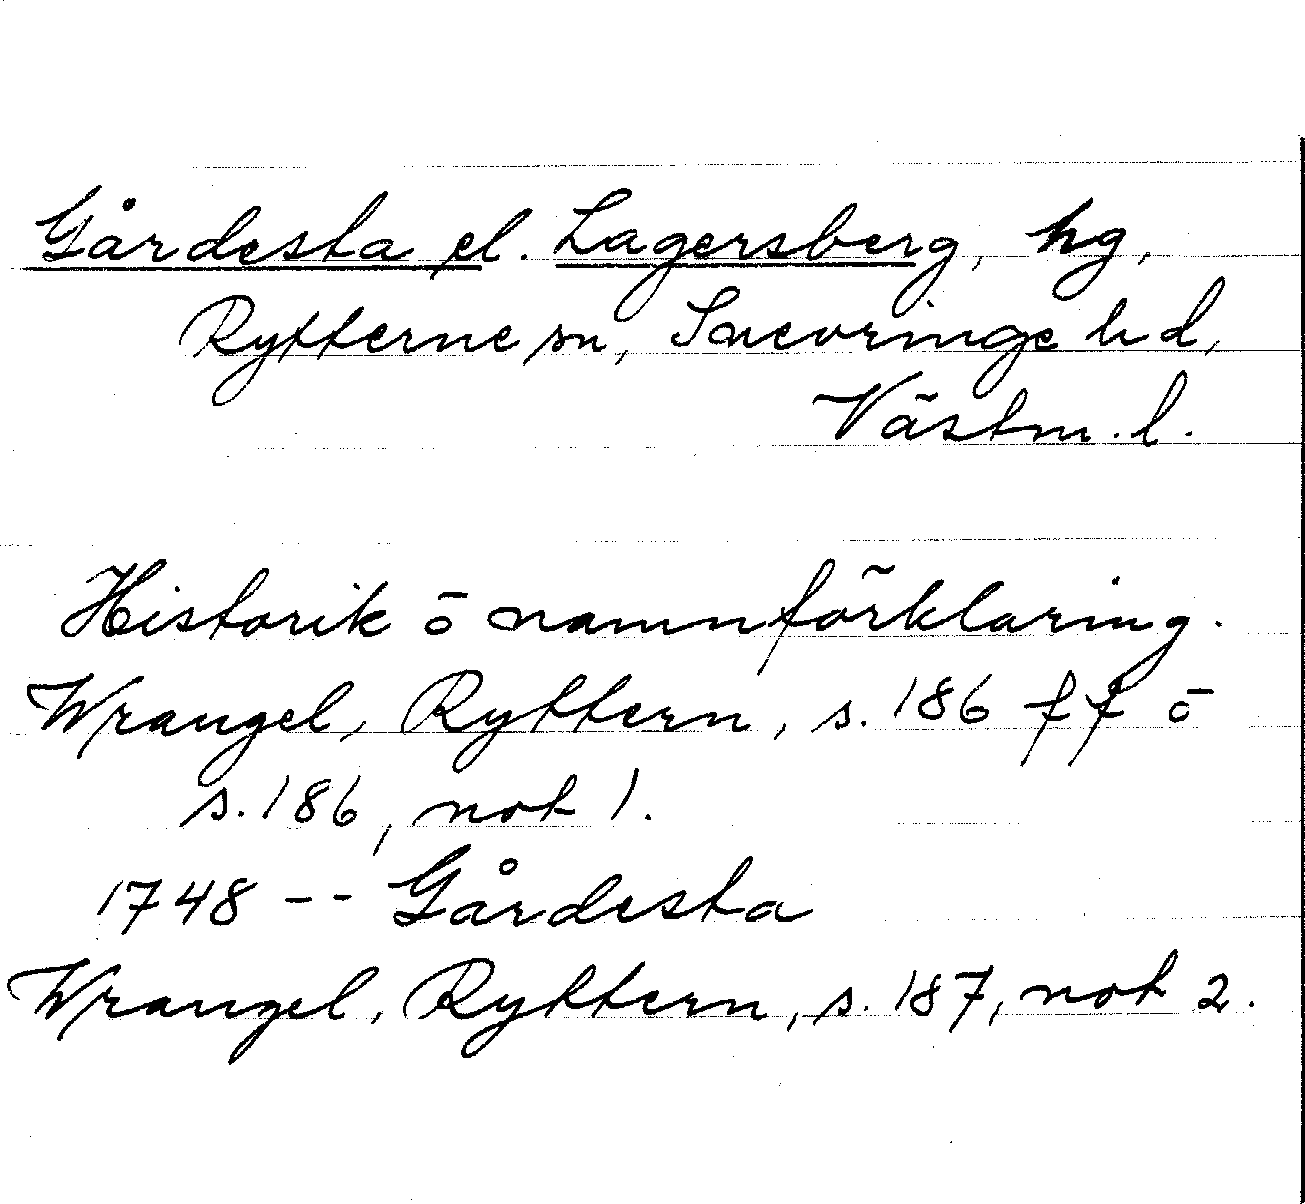 Gårdesta el. Lagersberg, hg,
Rytterne sn, Snevringe hd,
Västm. l.
Historik ō namnförklaring.
Wrangel, Ryttern, s. 186 ff ō
s. 186, not 1.
1748 -- Gårdesta
Wrangel, Ryttern, s. 187, not 2.